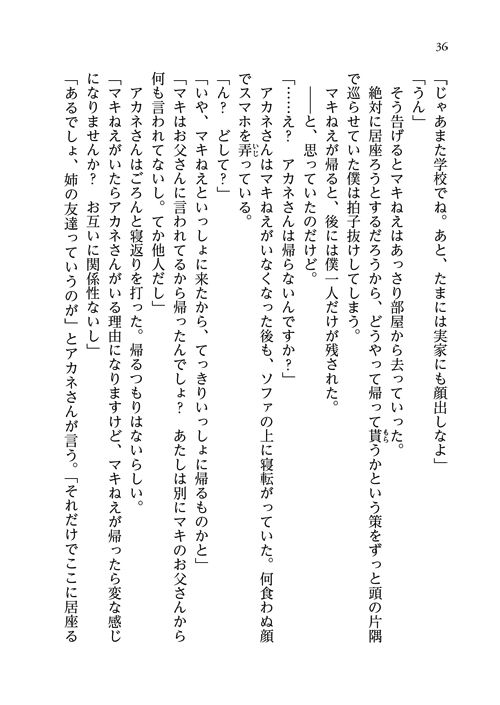 36
「じゃあまた学校でね。あと、たまには実家にも顔出しなよ」
「うん」
　そう告げるとマキねえはあっさり部屋から去っていった。
　絶対に居座ろうとするだろうから、どうやって帰って貰うかという策をずっと頭の片隅
で巡らせていた僕は拍子抜けしてしまう。
　マキねえが帰ると、後には僕一人だけが残された。
　――と、思っていたのだけど。
「……え？　アカネさんは帰らないんですか？」
　アカネさんはマキねえがいなくなった後も、ソファの上に寝転がっていた。何食わぬ顔
でスマホを弄っている。
「ん？　どして？」
「いや、マキねえといっしょに来たから、てっきりいっしょに帰るものかと」
「マキはお父さんに言われてるから帰ったんでしょ？　あたしは別にマキのお父さんから
何も言われてないし。てか他人だし」
　アカネさんはごろんと寝返りを打った。帰るつもりはないらしい。
「マキねえがいたらアカネさんがいる理由になりますけど、マキねえが帰ったら変な感じ
になりませんか？　お互いに関係性ないし」
「あるでしょ、姉の友達っていうのが」とアカネさんが言う。「それだけでここに居座る